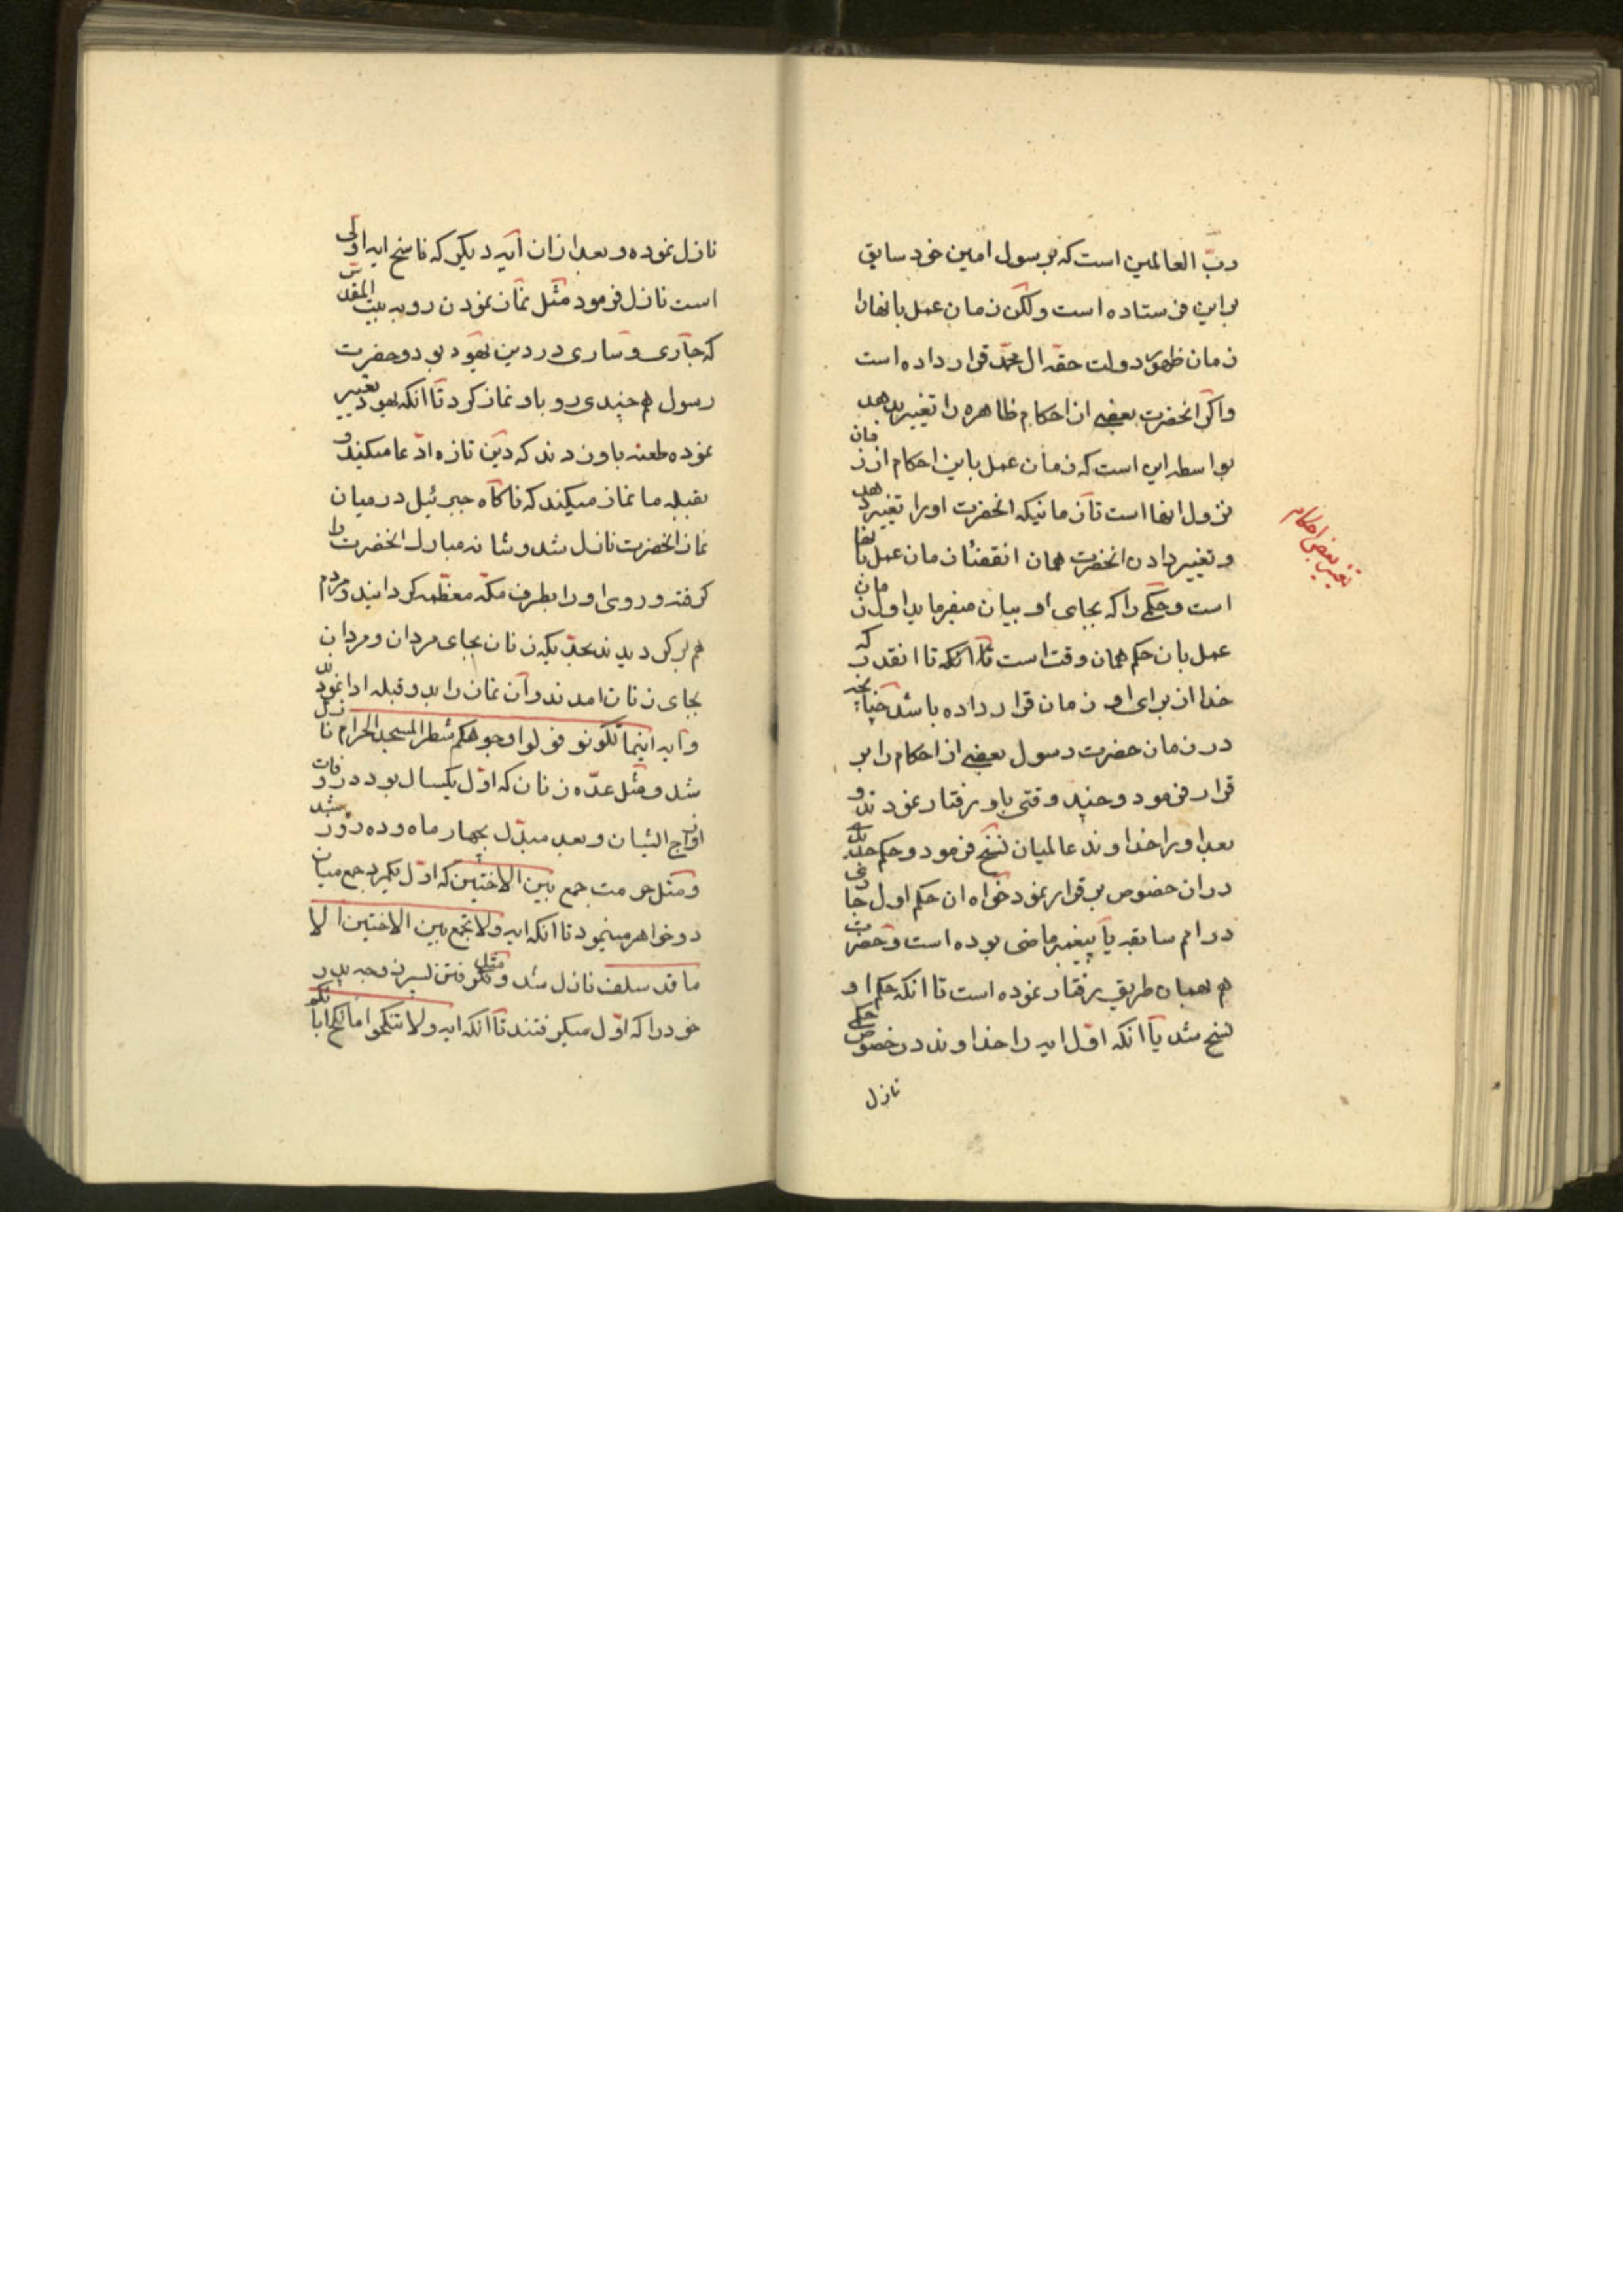 ربّ العالمین است که بر سول امین خود سابق
براین فرستاده است ولکن زمان عمل بانها را
زمان ظهور دولت حقه ال محمّد قرار داده است
واکر انحضرت بعضی از احکام ظاهره را تغییر بدهد
بواسطه این است که زمان عمل باین احکام از زمان
نزول انها است تا زمانیکه انحضرت اورا تغییر دهد
و تغییر دادن انحضرت همان انقضا زمان عمل بانها
است وحکمی را که بجای او بیان میفرماید اول زمان
عمل بان حکم همان وقت است تا انکه تا انقدر که
خدا از برای او زمان قرار داده باشد چنانچه
در زمان حضرت رسول بعضی از احکام را بر
قرار فرمود و چند وقتی باو رفتار نمودند و
بعد اورا خداوند عالمیان نسخ فرمود و حکم جدیدی
دران خصوص بر قرار نمود خواه ان حکم اول جاری
در امم سابقه یا پیغمبر ماضی بوده است وحضرت
هم بهمان طریق رفتار نموده است تا انکه حکم او
نسخ شد یا انکه اوّل ایه را خداوند در خصوص حکمی
نازل
تغییر بعض احکام
نازل نموده و بعد از ان ایه دیکر که ناسخ ایه اولی
است نازل فرمود مثل نماز نمودن رو به بیت المقدس
که جاری و ساری در دین یهود بود و حضرت
رسول هم چندی رو باو نماز کرد تا انکه یهود تعییر
نموده طعنه باو زدند که دین تازه ادّعا میکند و
بقبله ما نماز میکند که ناکاه جبرئیل در میان
نماز انحضرت نازل شد و شانه مبارک انحضرت را
کرفته و روی او را بطرف مکّه معظّمه کردانید و مردم
هم بر کردیدند بحدّیکه زنان بجای مردان و مردان
بجای زنان امدند و ان نماز را بدو قبله ادا نمودند
و ایه اینما تکونو فولوا وجوهکم شطر المسجد الحرام نازل
شد و مثل عدّه زنان که اوّل یکسال بود در وفات
ازواج ایشان و بعد مبدّل بچهار ماه و ده روز شد
و مثل حرمت جمع بین الاختین که اوّل جمع میان
دو خواهر مینمود تا انکه ایه ولا تجمع بین الاختین الا
ما قد سلف نازل شد و مثل کرفتن پسر زوجه پدر
خود را که اوّل میکرفتند تا انکه ایه ولا تنکحوا ما نکح اباؤکم